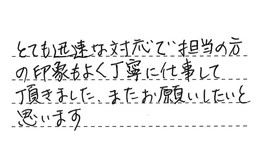 とても迅速な対応で担当の方
の印象もよく丁寧に仕事して
頂きました。またお願いしたいと
思います